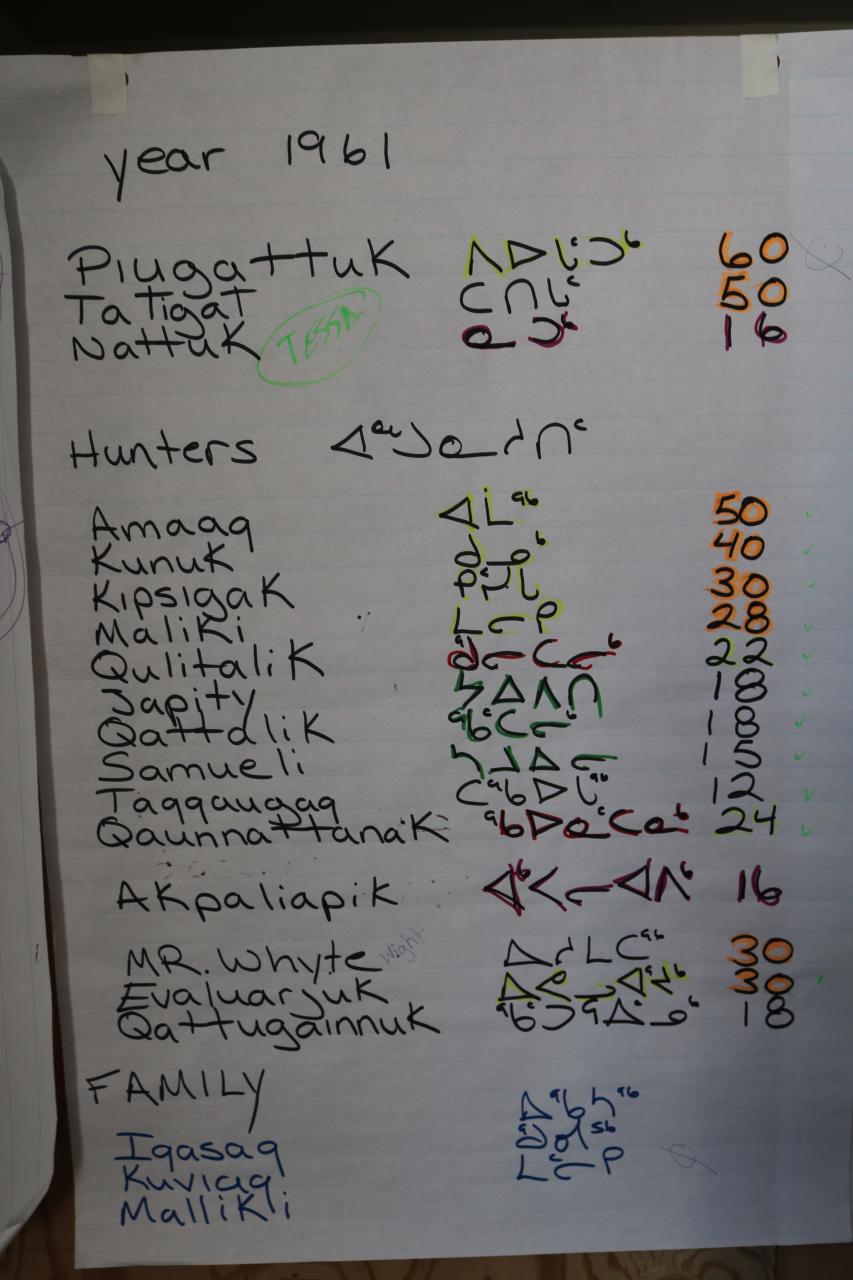 year 1961
Piugattuk ᐱᐅᒑᑦᑐᒃ 60
Tatigat ᑕᑎᒐᑦ 50
Nattuk TESSA 16
Hunters ᐊᖑᓇᓱᑎᑦ
Amaaq ᐊᒫᖅ 50
Kunuk ᑯᓄᒃ 40
Kipsigak 30
Maliki ᒪᓕᑭ 28
Qulitalik ᖁᓕᑕᓕᒃ 22
Sapity ᓴᐃᐱᑎ 18
Qattalik 18
Samueli ᓴᒧᐃᓕ 15
Taqqaugaq ᑕᖃᐅᒐᖅ 12
Qaunnattanak ᖃᐅᓐᓇᑕᓇᒃ 24
Akpaliapik ᐊᒃᐸᓕᐊᐱᒃ 16
MR. Whyte Wight ᐃᓱᒪᑕᖅ 30
Evaluarjuk 30
Qattugainnuk 18
FAMILY
Iqasaq ᐃᖃᓴᖅ
Kuviaq
Mallikli ᒪᓪᓕᑭ